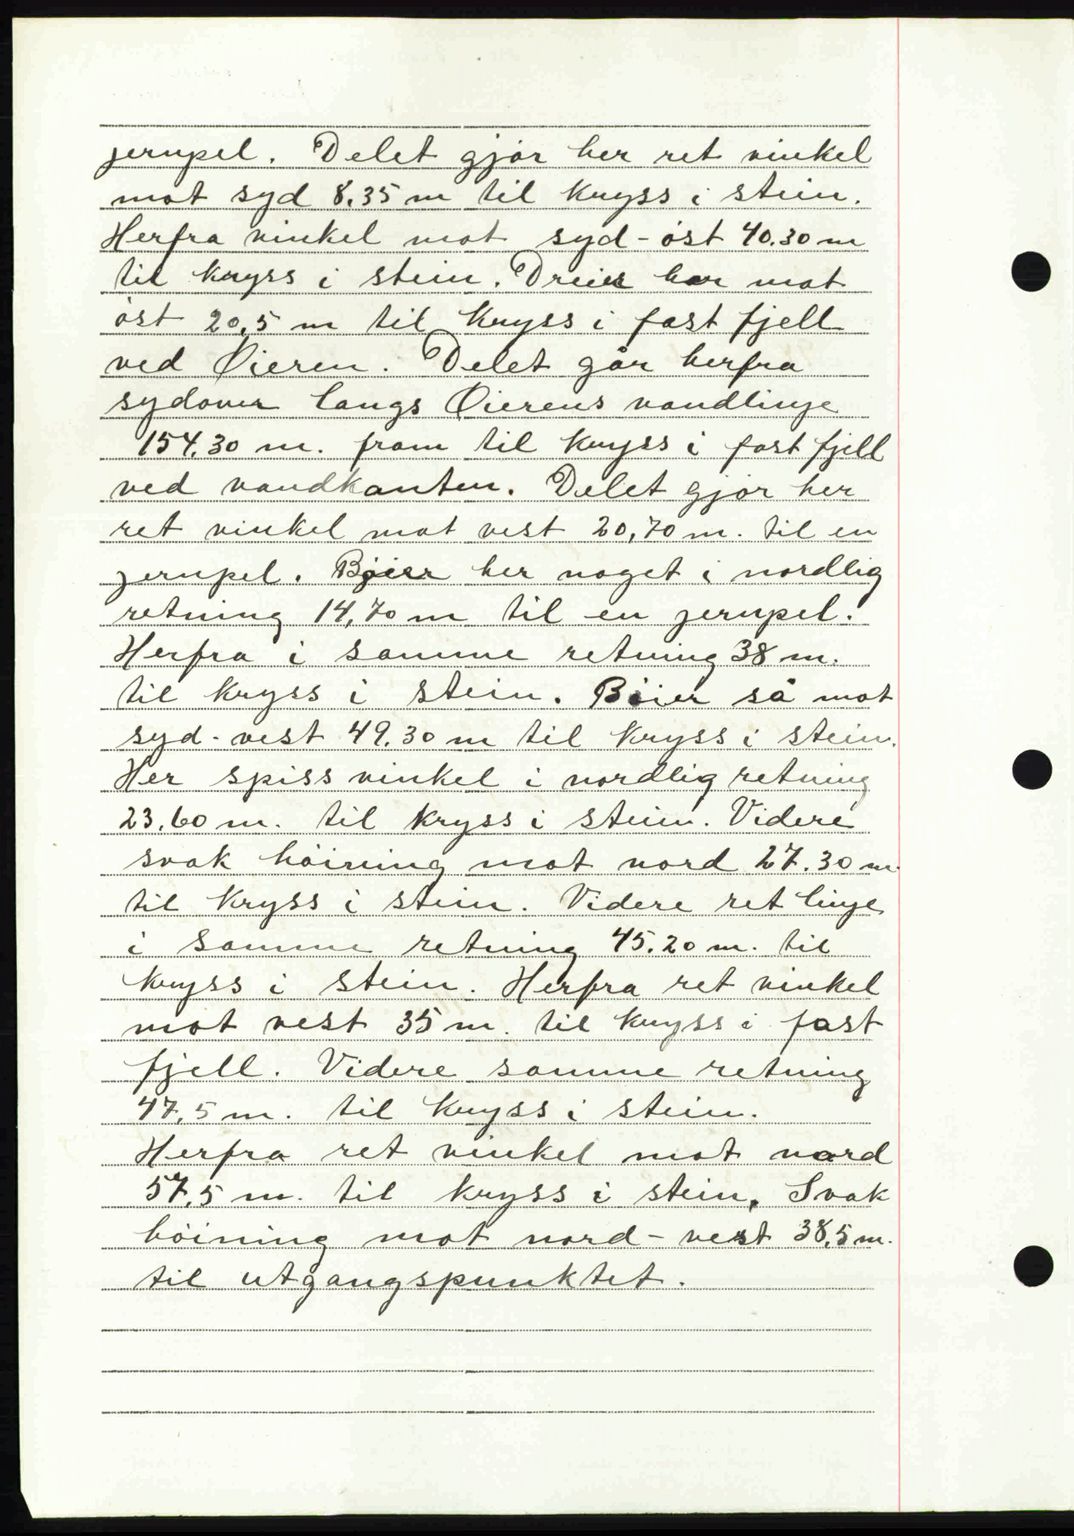 jernpel. Delet gjør her ret vinkel
mot syd 8,35 m til kryss i stein.
Herfra vinkel mot syd-öst 40.30 m
til kryss i stein. Dreier her mot
öst 20,5 m til kryss i fast fjell
ved Øieren. Delet går herfra
sydover langs Øierens vandlinje
154.30 m. fram til kryss i fast fjell
ved vandkanten. Delet gjør her
ret vinkel mot vest 20,70 m. til en
jernpel. Bøier her noget i nordlig
retning 14,70 m til en jernpel.
Herfra i samme retning 38 m.
til kryss i stein. Böier så mot
syd-vest 49.30 m til kryss i stein.
Her spiss vinkel i nordlig retning
23.60 m. til kryss i stein. Videre
svak böining mot nord 27.30 m.
til kryss i stein. Videre ret linje
i samme retning 45.20 m. til
kryss i stein. Herfra ret vinkel
mot vest 35 m. til kryss i fast
fjell. Videre samme retning
47,5 m. til kryss i stein.
Herfra ret vinkel mot nord
57,5 m. til kryss i stein. Svak
böining mot nord-vest 38,5 m.
til utgangspunktet.